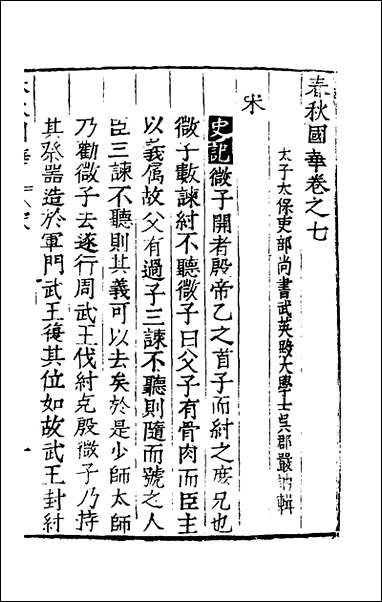 春秋國華卷之七
太子太保吏部尚書武英殿大學士吳郡嚴訥輯
宋
史記微子開者殷帝乙之首子而紂之庶兄也
微子數諫紂不聽微子曰父子有骨肉而臣主
以義属故父有過子三諫不聽則隨而號之人
臣三諫不聽則其義可以去矣於是少師太師
乃勸微子去遂行周武王伐紂克殷微子乃持
其祭器造於軍門武王復其位如故武王封紂
一